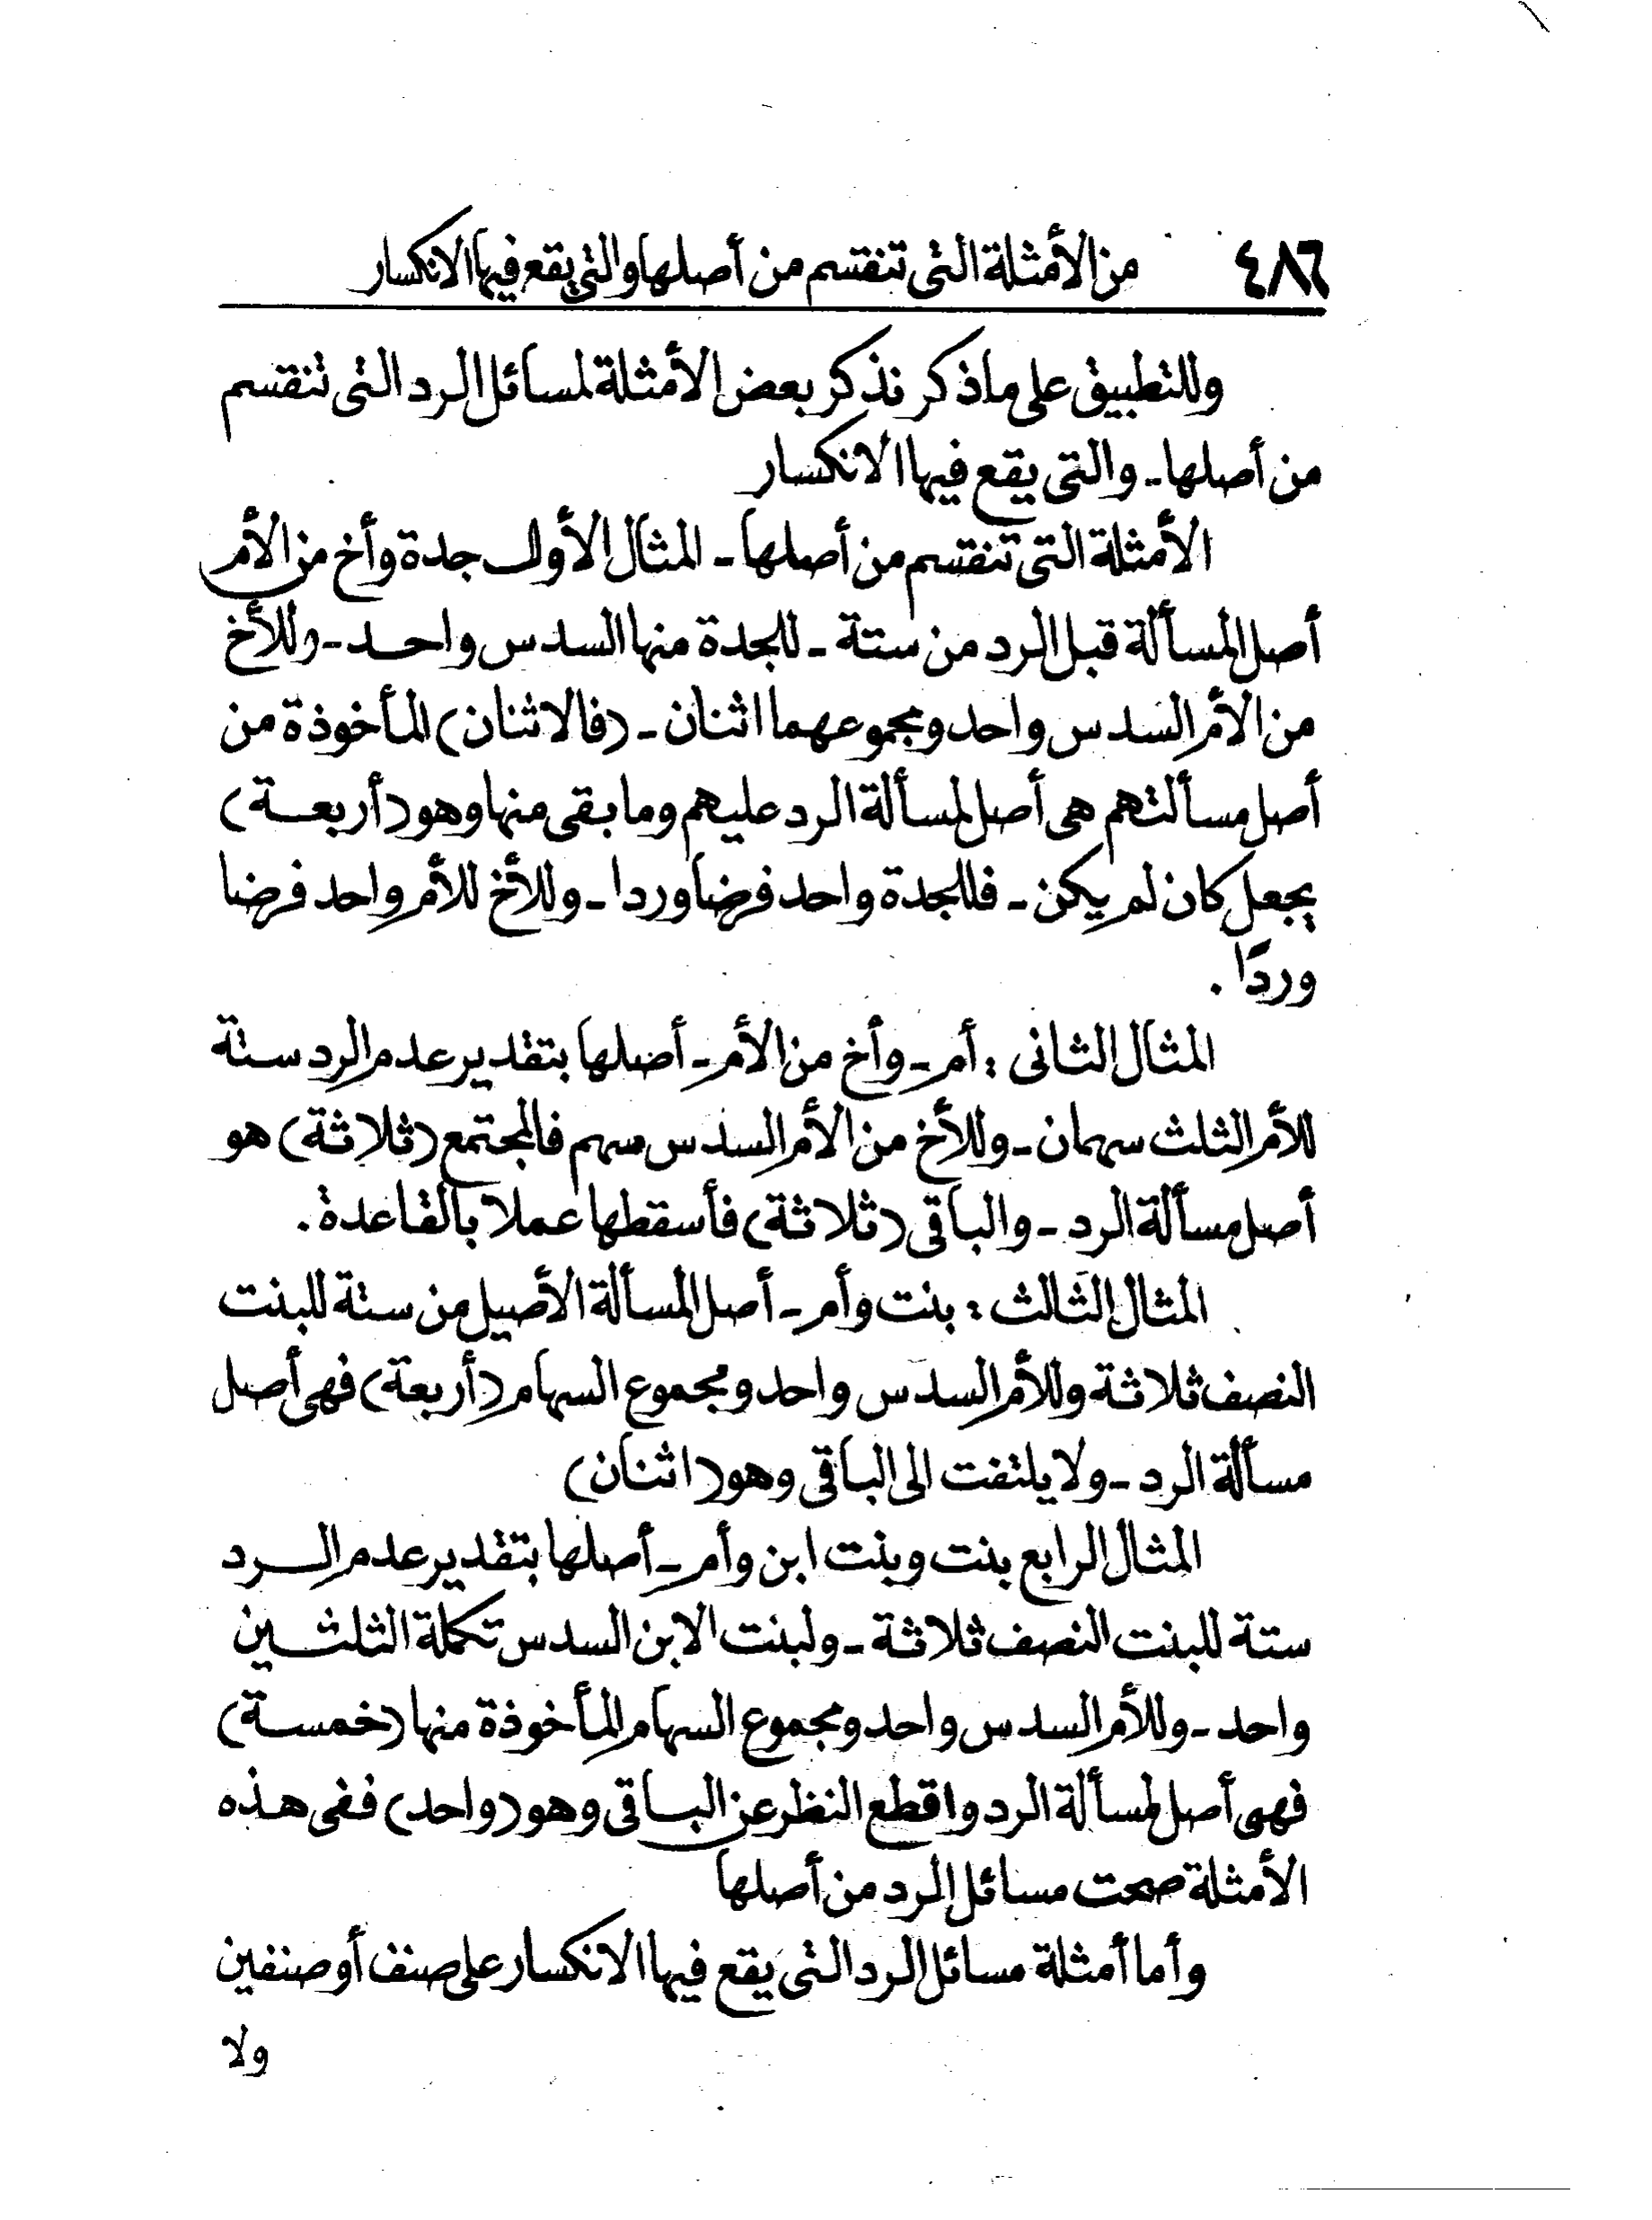 ٤٨٦ من الأمثلة التى تنقسم من أصلها والتى يقع فيها الانكسار
وللتطبيق على ماذكر نذكر بعض الأمثلة لمسائل الرد التى تنقسم
من أصلها - والتى يقع فيها الانكسار
الأمثلة التى تنقسم من أصلها - المثال الأول جدة وأخ من الأم
أصل المسألة قبل الرد من ستة - للجدة منها السدس واحد - وللأخ
من الأم السدس واحد ومجموعهما اثنان - (فالاثنان) المأخوذة من
أصل مسألتهم هى أصل لمسألة الرد عليهم وما بقى منها وهو (أربعة)
يجعل كان لم يكن - فللجدة واحد فرضا وردا - وللأخ للأم واحد فرضا
وردًا .
المثال الثانى : أم - وأخ من الأم - أصلها بتقدير عدم الرد ستة
للأم الثلث سهمان - وللأخ من الأم السدس سهم فالمجتمع (ثلاثة) هو
أصل مسألة الرد - والباقى (ثلاثة) فأسقطها عملا بالقاعدة .
المثال الثالث : بنت وأم - أصل المسألة الأصيل من ستة للبنت
النصف ثلاثة وللأم السدس واحد ومجموع السهام (أربعة) فهى أصل
مسألة الرد - ولا يلتفت الى الباقى وهو (اثنان)
المثال الرابع بنت وبنت ابن وأم - أصلها بتقدير عدم الرد
ستة للبنت النصف ثلاثة - ولبنت الابن السدس تكملة الثلثين
واحد - وللأم السدس واحد ومجموع السهام المأخوذة منها (خمسة)
فهى أصل لمسألة الرد واقطع النظر عن الباقى وهو (واحد) ففى هذه
الأمثلة صحت مسائل الرد من أصلها
وأما أمثلة مسائل الرد التى يقع فيها الانكسار على صنف أو صنفين
ولا